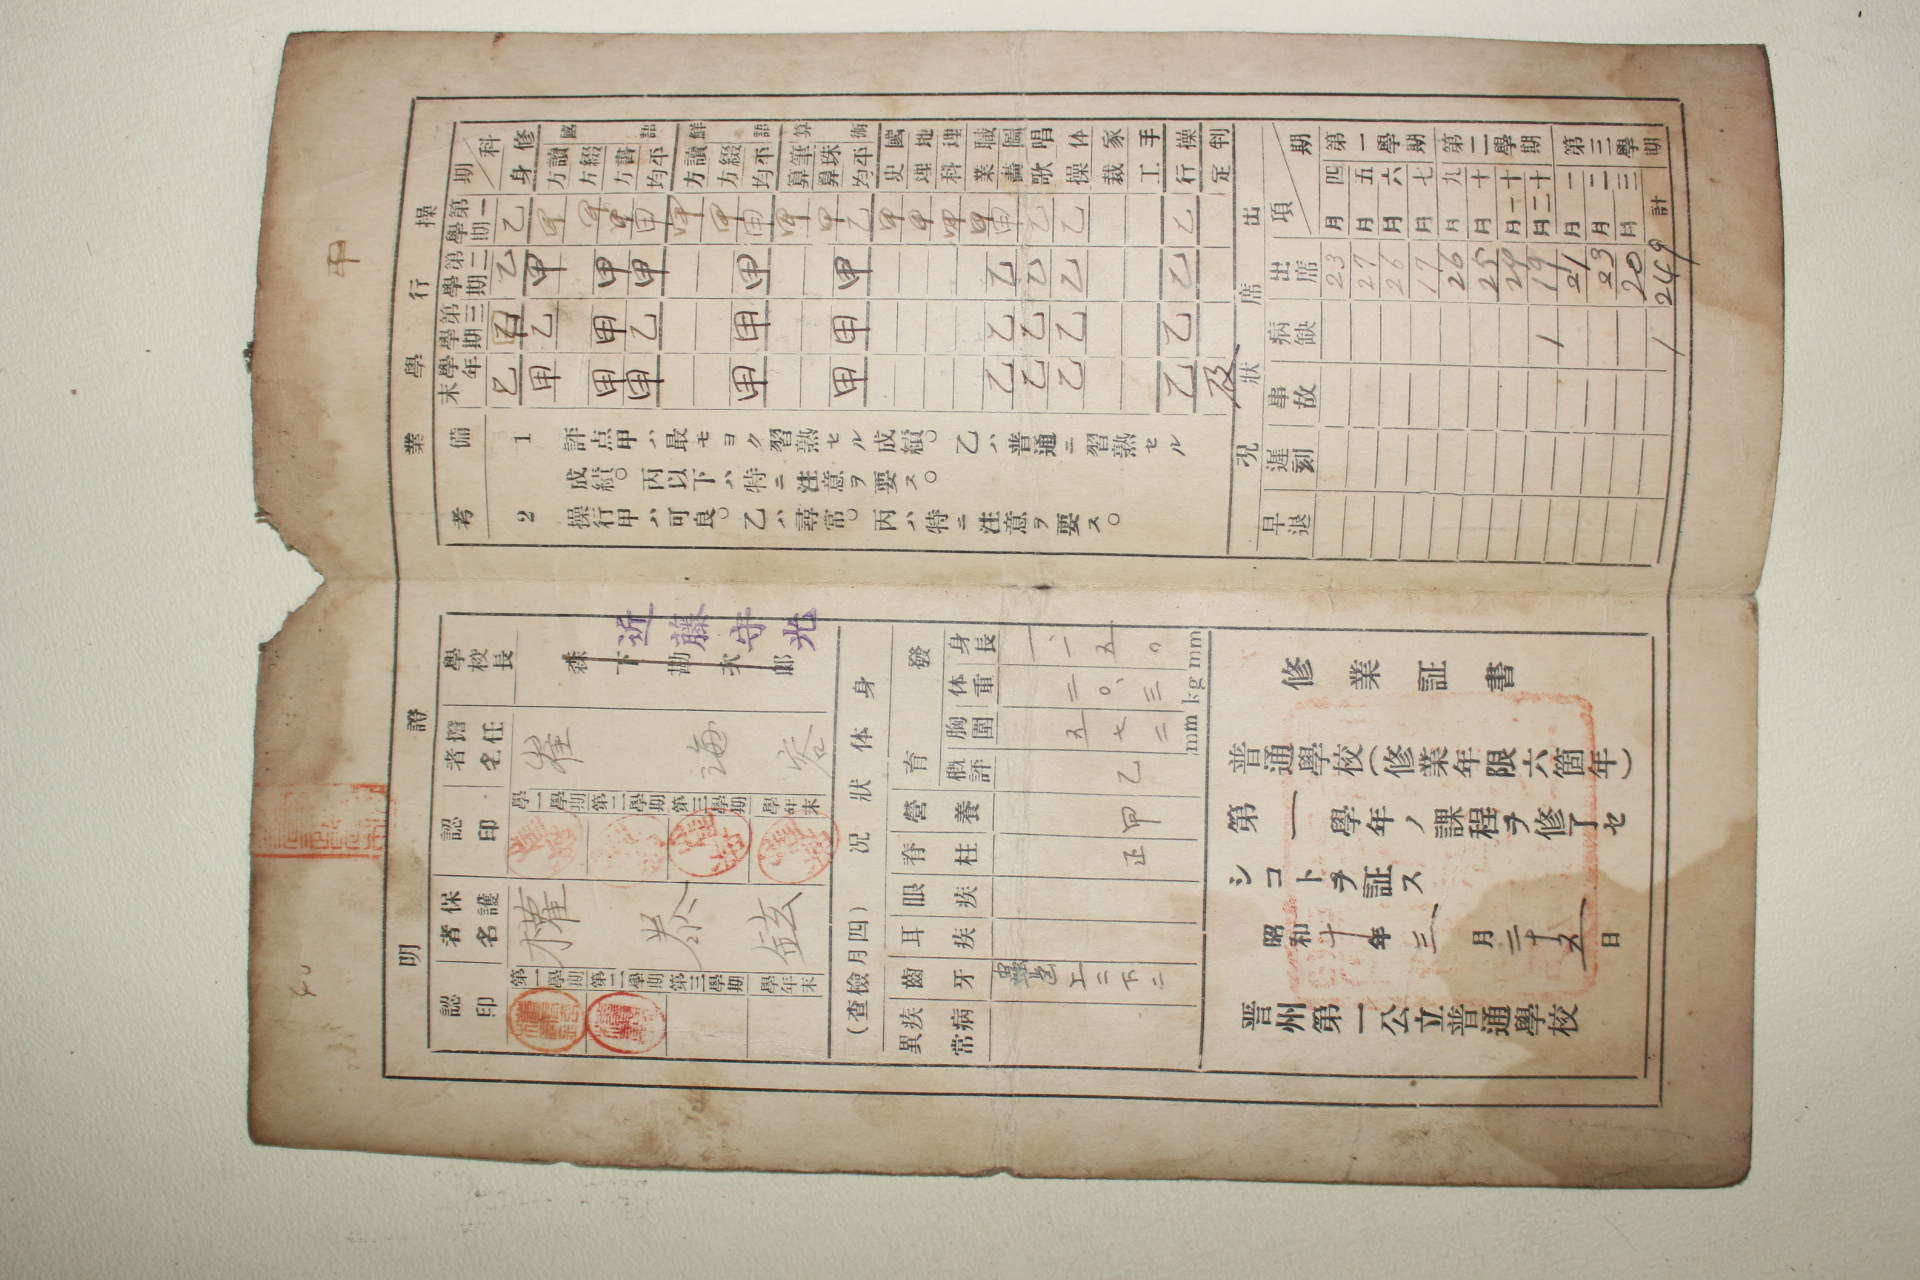 學業操行
科 期
第一學期
第二學期
第三學期
學年末
備考
修身 乙 乙 乙
國語
讀方 甲 甲 乙 甲
綴方 甲
書方 甲 甲 甲 甲
平均 甲 甲 乙 甲
鮮語
讀方 甲
綴方 甲
平均 甲 甲 甲 甲
算術
筆算 甲
珠算 甲
平均 乙 甲 甲 甲
國史 甲
地理 甲
理科 甲
職業 甲 乙 乙 乙
圖畵 乙 乙 乙
唱歌 乙 乙 乙 乙
体操
家裁
手工
操行 乙 乙 乙 乙
判定 及
1 評点甲ハ最モヨク習熟セル成績。乙ハ普通ニ習熟セル
成績。丙以下ハ特ニ注意ヲ要ス。
2 操行甲ハ可良。乙ハ尋常。丙ハ特ニ注意ヲ要ス。
出席狀況
期 項 出席 病缺 事故 遲刻 早退
第一學期
四月 23
五月 27
六月 26
七月 17
第二學期
九月 26
十月 25
十一月 24
十二月 19 1
第三學期
一月 21
二月 23
三月 20
計 249 1
證明
學校長
森下勘次郎
近藤守光
擔任者名
崔海容
認印
第一學期
第二學期
第三學期
學年末
保護者名
權泰鉉
認印
第一學期
第二學期
第三學期
學年末
身体狀況
(查檢月四)
發育
身長 一、一五〇 mm
体重 二〇、三 kg
胸圍 五七二 mm
概評 乙
營養 甲
脊柱 正
眼疾
耳疾
齒牙 蟲齒 上二下二
疾病異常
修業証書
普通學校(修業年限六箇年)
第一學年ノ課程ヲ修了セ
シコトヲ証ス
昭和十年三月二十五日
晋州第一公立普通學校
甲